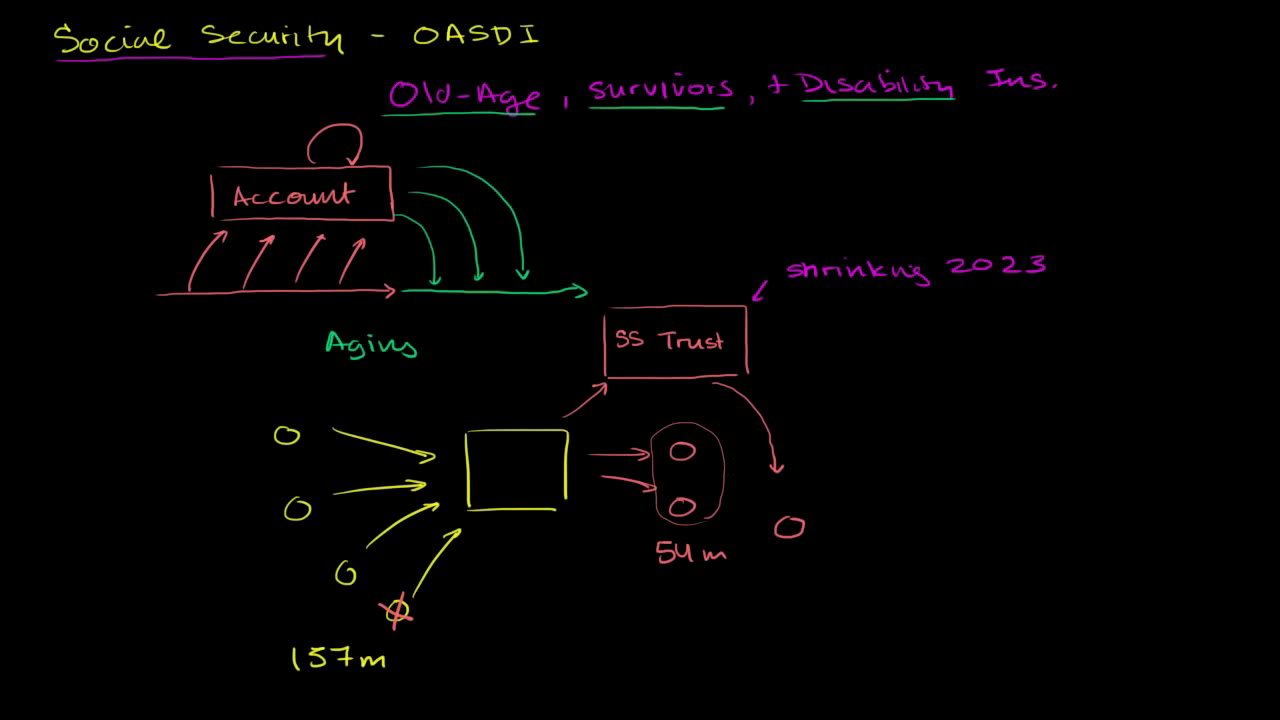 Social Security - OASDI
Old-Age, survivors, + Disability Ins.
Account
shrinking 2023
SS Trust
Aging
54m
157m